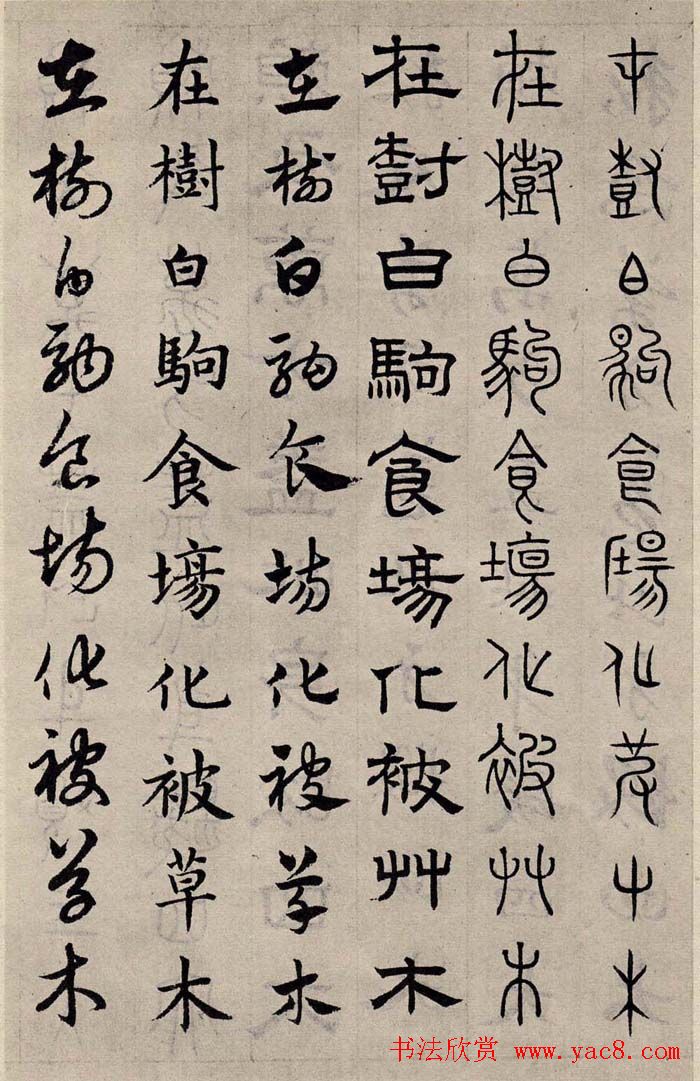 在樹白駒食場化被草木
在樹白駒食場化被艸木
在樹白駒食場化被艸木
在樹白駒食場化被草木
在樹白駒食場化被草木
在樹白駒食場化被草木
书法欣赏 www.yac8.com